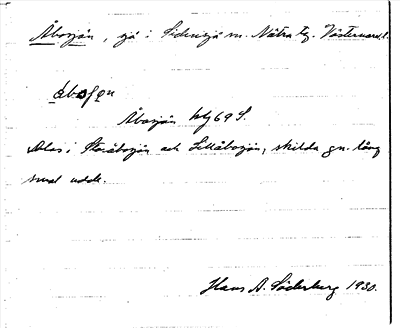 Åbosjön, sjö i Sidensjö sn. Nätra tg. Västernorrl. l.
åbosjön
Åbosjön ktbl 69 S.
Delas i Storåbosjön och Lillåbosjön, skilda gn. lång
smal udde.
Hans A. Söderberg 1930.